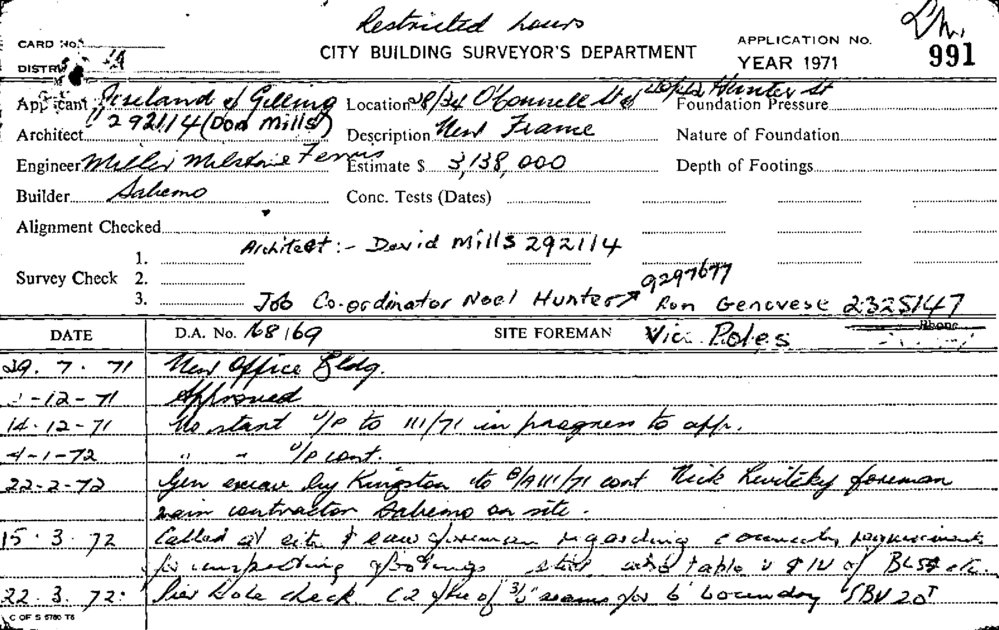 Restricted hours
CARD No.
CITY BUILDING SURVEYOR'S DEPARTMENT
APPLICATION No.
991
DISTRICT
YEAR 1971
Applicant Freeland & Gelling Location 28/34 O'Connell St & Hunter St Foundation Pressure
Architect 292114 (Don Mills) Description New Frame Nature of Foundation
Engineer Miller Milstone Ferris Estimate $ 3,138,000 Depth of Footings
Builder Sabemo Conc. Tests (Dates)
Alignment Checked
Architect :- David Mills 292114
Survey Check 1.
2.
9297677
3. Job Co-ordinator Noel Hunter Ron Genovese 2325147
DATE D.A. No. 168/69 SITE FOREMAN Vic. Poles Phone
29.7.71 New Office Bldg.
-12-71 Approved
14-12-71 No start U/P to 111/71 in progress to app.
4-1-72 " " U/P cont.
22-2-72 Gen excav by Kingston to B/A 111/71 cont Nick Levitsky foreman
main contractor Sabemo on site.
15.3.72 Called at site & saw foreman regarding council requirements
for inspecting footings table & IV of
22.3.72: Pier hole check of seams for 6' boundary SBV 20T
C OF S 5780 T8